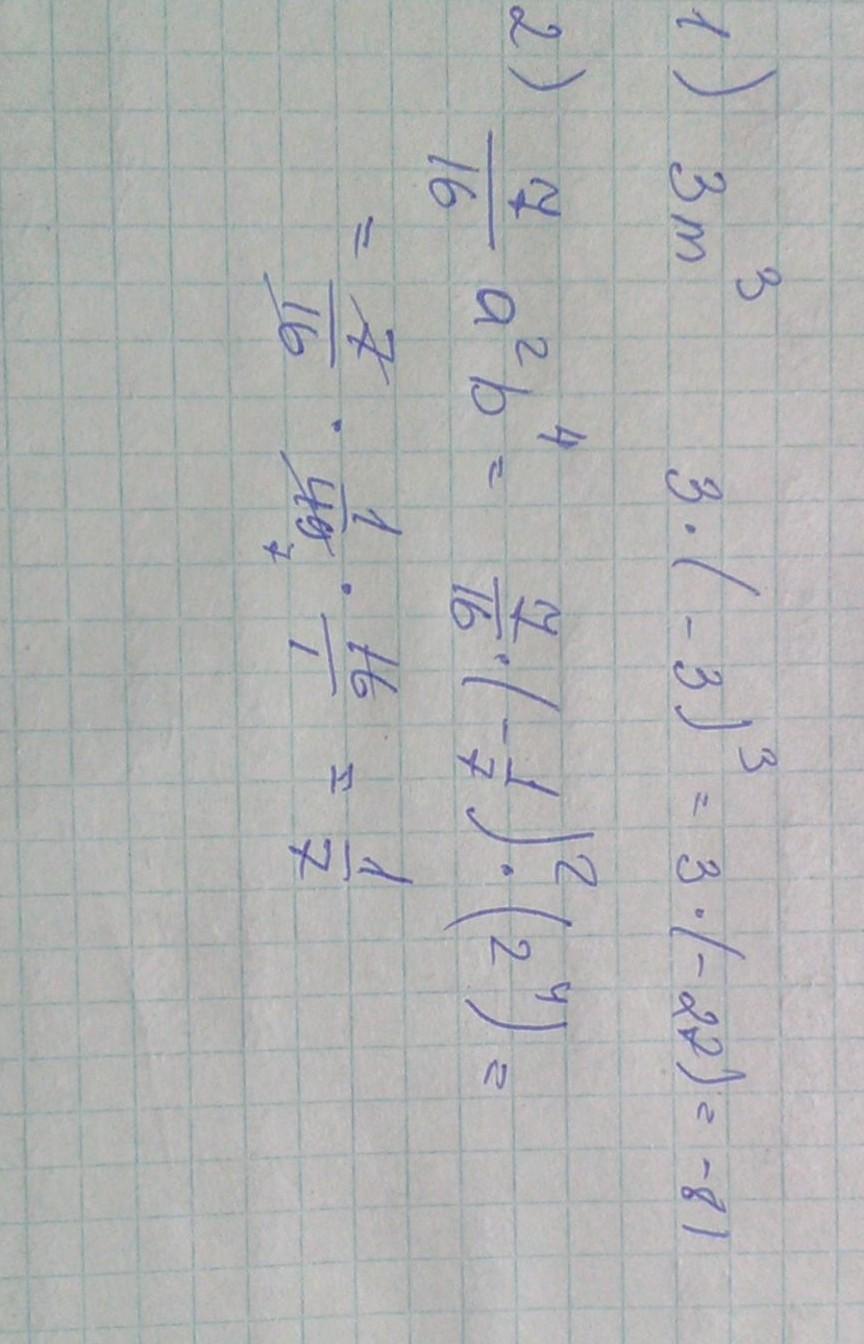 1) 3m³ 3·(-3)³ = 3·(-27) = -81
2) 7/16 a²b⁴ = 7/16·(-1/7)²·(2⁴) =
= 7/16 · 1/49 7 · 16/1 = 1/7